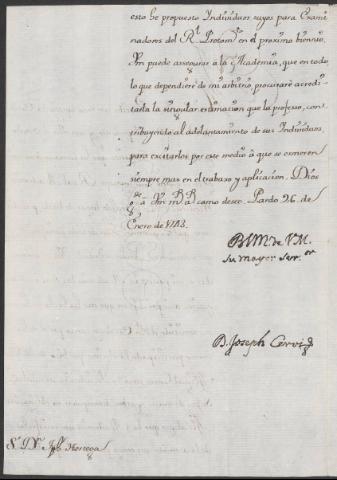 esto he propuesto Individuos suyos para Exami-
nadores del Rl. Protomto en el proximo biennio.
Vm puede assegurar à la Academia, que en todo
lo que dependiere de mi arbitrio, procuraré acredi-
tarla la singular estimacion que la professo, con-
tribuyendo al adelantamiento de sus Individuos,
para excitarlos por este medio à que se esmeren
siempre mas en el trabajo y aplicacion. Dios
gde à Vm ms as como deseo. Pardo 26 de
Enero de 1743.
BLM. de VM.
su mayor seror
D. Joseph Cervi
Sr Dn Jph Hortega